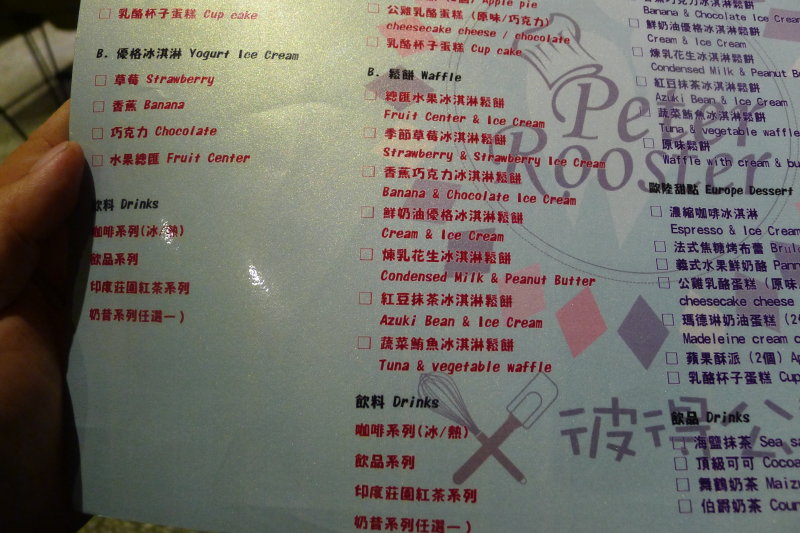 乳酪杯子蛋糕 Cup cake
B. 優格冰淇淋 Yogurt Ice Cream
草莓 Strawberry
香蕉 Banana
巧克力 Chocolate
水果總匯 Fruit Center
飲料 Drinks
咖啡系列(冰/熱)
飲品系列
印度莊園紅茶系列
奶昔系列任選一)
Apple pie
公雞乳酪蛋糕 (原味/巧克力)
cheesecake cheese / chocolate
乳酪杯子蛋糕 Cup cake
B. 鬆餅 Waffle
總匯水果冰淇淋鬆餅
Fruit Center & Ice Cream
季節草莓冰淇淋鬆餅
Strawberry & Strawberry Ice Cream
香蕉巧克力冰淇淋鬆餅
Banana & Chocolate Ice Cream
鮮奶油優格冰淇淋鬆餅
Cream & Ice Cream
煉乳花生冰淇淋鬆餅
Condensed Milk & Peanut Butter
紅豆抹茶冰淇淋鬆餅
Azuki Bean & Ice Cream
蔬菜鮪魚冰淇淋鬆餅
Tuna & vegetable waffle
飲料 Drinks
咖啡系列(冰/熱)
飲品系列
印度莊園紅茶系列
奶昔系列任選一)
香蕉巧克力冰淇淋鬆餅
Banana & Chocolate Ice Cream
鮮奶油優格冰淇淋鬆餅
Cream & Ice Cream
煉乳花生冰淇淋鬆餅
Condensed Milk & Peanut B
紅豆抹茶冰淇淋鬆餅
Azuki Bean & Ice Cream
蔬菜鮪魚冰淇淋鬆餅
Tuna & vegetable waffle
原味鬆餅
Waffle with cream & bu
歐陸甜點 Europe Dessert
濃縮咖啡冰淇淋
Espresso & Ice Cream
法式焦糖烤布蕾 Brul
義式水果鮮奶酪 Pann
公雞乳酪蛋糕 (原味
cheesecake cheese
瑪德琳奶油蛋糕 (2
Madeleine cream c
蘋果酥派 (2個) A
乳酪杯子蛋糕 Cup
飲品 Drinks
海鹽抹茶 Sea sa
頂級可可 Cocoa
舞鶴奶茶 Maizu
伯爵奶茶 Coun
Peter
Rooster
彼得公